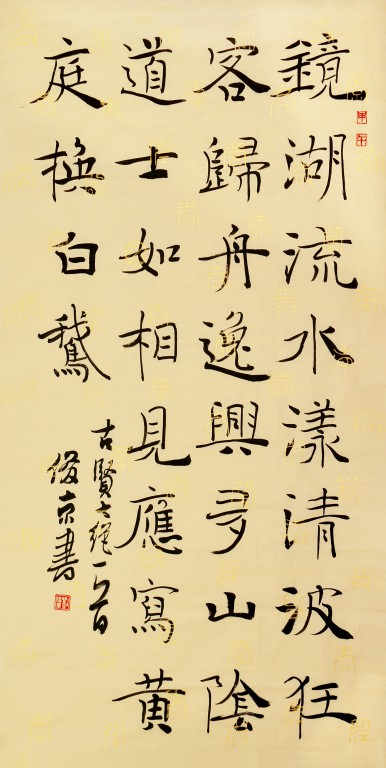 鏡湖流水漾清波狂
客歸舟逸興多山陰
道士如相見應寫黃
庭換白鵝
古賢七絕一首
俊京書
甲午